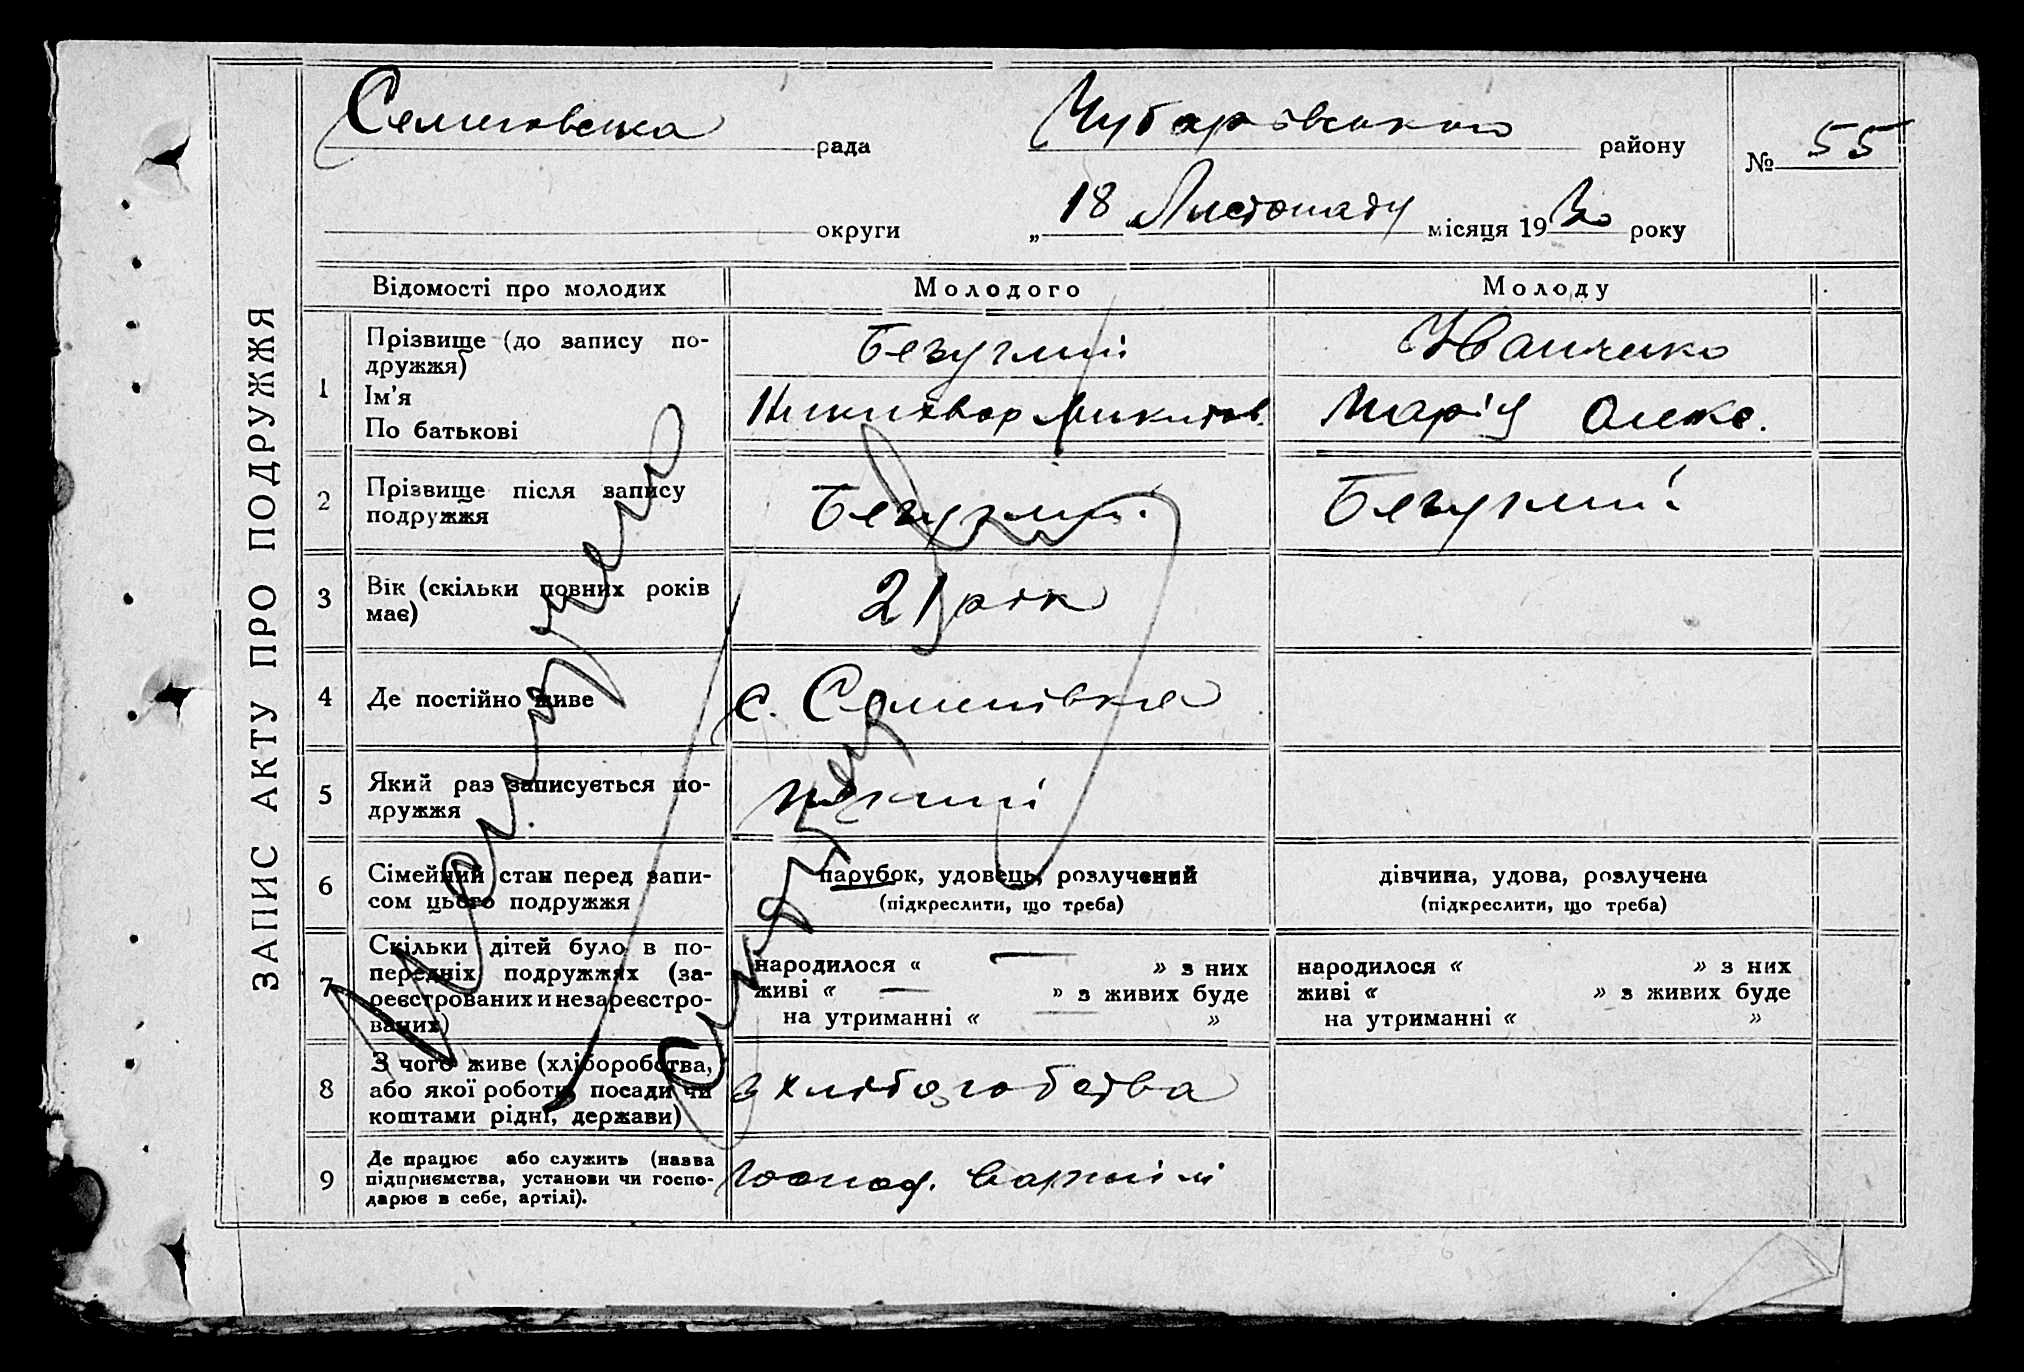 ЗАПИС АКТУ ПРО ПОДРУЖЖЯ
рада
Чубарівського району
№ 55
округи
„ 18 Листопаду місяця 1930 року
Відомості про молодих Молодого Молоду
1 Прізвище (до запису по-
дружжя) Безуглий Иванченко
Ім'я
По батькові Никихвор Микитов. Марія Олекс.
2 Прізвище після запису
подружжя Безуглий Безуглий
3 Вік (скільки повних років
має) 21 рік
4 Де постійно живе с. Семенівка
5 Який раз записується по-
дружжя
6 Сімейний стан перед запи-
сом цього подружжя
парубок, удовець, розлучений
(підкреслити, що треба)
дівчина, удова, розлучена
(підкреслити, що треба)
7 Скільки дітей було в по-
передніх подружжях (за-
реєстрованих и незареєстро-
ваних)
народилося « — » з них
живі « — » з живих буде
на утриманні « — »
народилося « » з них
живі « » з живих буде
на утриманні « »
8 З чого живе (хліборобства,
або якої роботи, посади чи
коштами рідні, держави) з хліборобства
9 Де працює або служить (назва
підприємства, установи чи госпо-
дарює в себе, артілі). в артілі